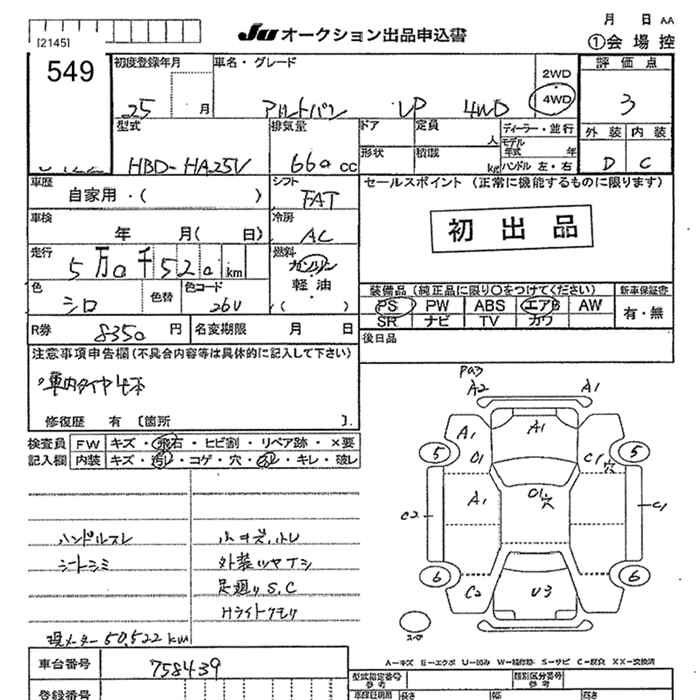 [2145]
Ju オークション出品申込書
月 日 AA
①会場控
549
初度登録年月
25 月
車名・グレード
アルトバン VP 4WD
2WD
4WD
評価点
3
外装 内装
D C
型式
HBD-HA25V
排気量
660 cc
ドア
形状
定員 人
積載 kg
ディーラー・並行
モデル年式 年
ハンドル 左・右
車歴
自家用・( )
シフト
FAT
セールスポイント (正常に機能するものに限ります)
初出品
車検
年 月( 日)
冷房
AC
走行
5万0千520km
燃料
ガソリン
軽油
・( )
色
シロ
色替
色コード
26U
装備品(純正品に限り○をつけてください)
PS PW ABS エアB AW
SR ナビ TV カワ
新車保証書
有・無
R券 8350円
名変期限 月 日
後日品
注意事項申告欄(不具合内容等は具体的に記入して下さい)
車内タイヤ4本
修復歴 有 〔箇所 〕.
検査員記入欄
FW キズ・飛石・ヒビ割・リペア跡・×要
内装 キズ・汚レ・コゲ・穴・のレ・キレ・破レ
ハンドルスレ
シートシミ
小キズ、小レ
外装ツヤナシ
足廻りS.C
Hライトクモリ
現メーター 50,522km
車台番号 758439
登録番号
A2 A1
A1 A1
5 5
01 C1穴
A1 01穴
C2 C1
6 6
C2 U3
スペア
A－キズ E－エクボ U－凹み W－補修跡 S－サビ C－腐食 XX－交換済
型式指定番号 参考
類別区分番号 参考
長さ 幅 高さ